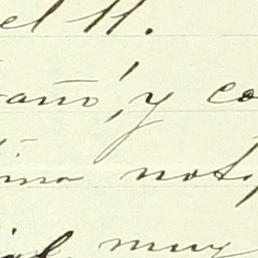 el 11.
año, y co
ima not
ial, muy